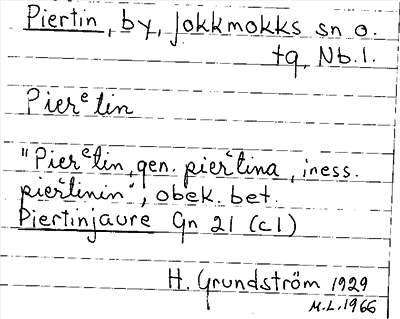 Piertin, by, Jokkmokks sn o.
tg, Nb. l.
Pierᵉtin
"Pierᵉtin, gen. pierᵉtina, iness.
pierᵉtinin", obek. bet.
Piertinjaure Gn 21 (c1)
H. Grundström 1929
M.L. 1966